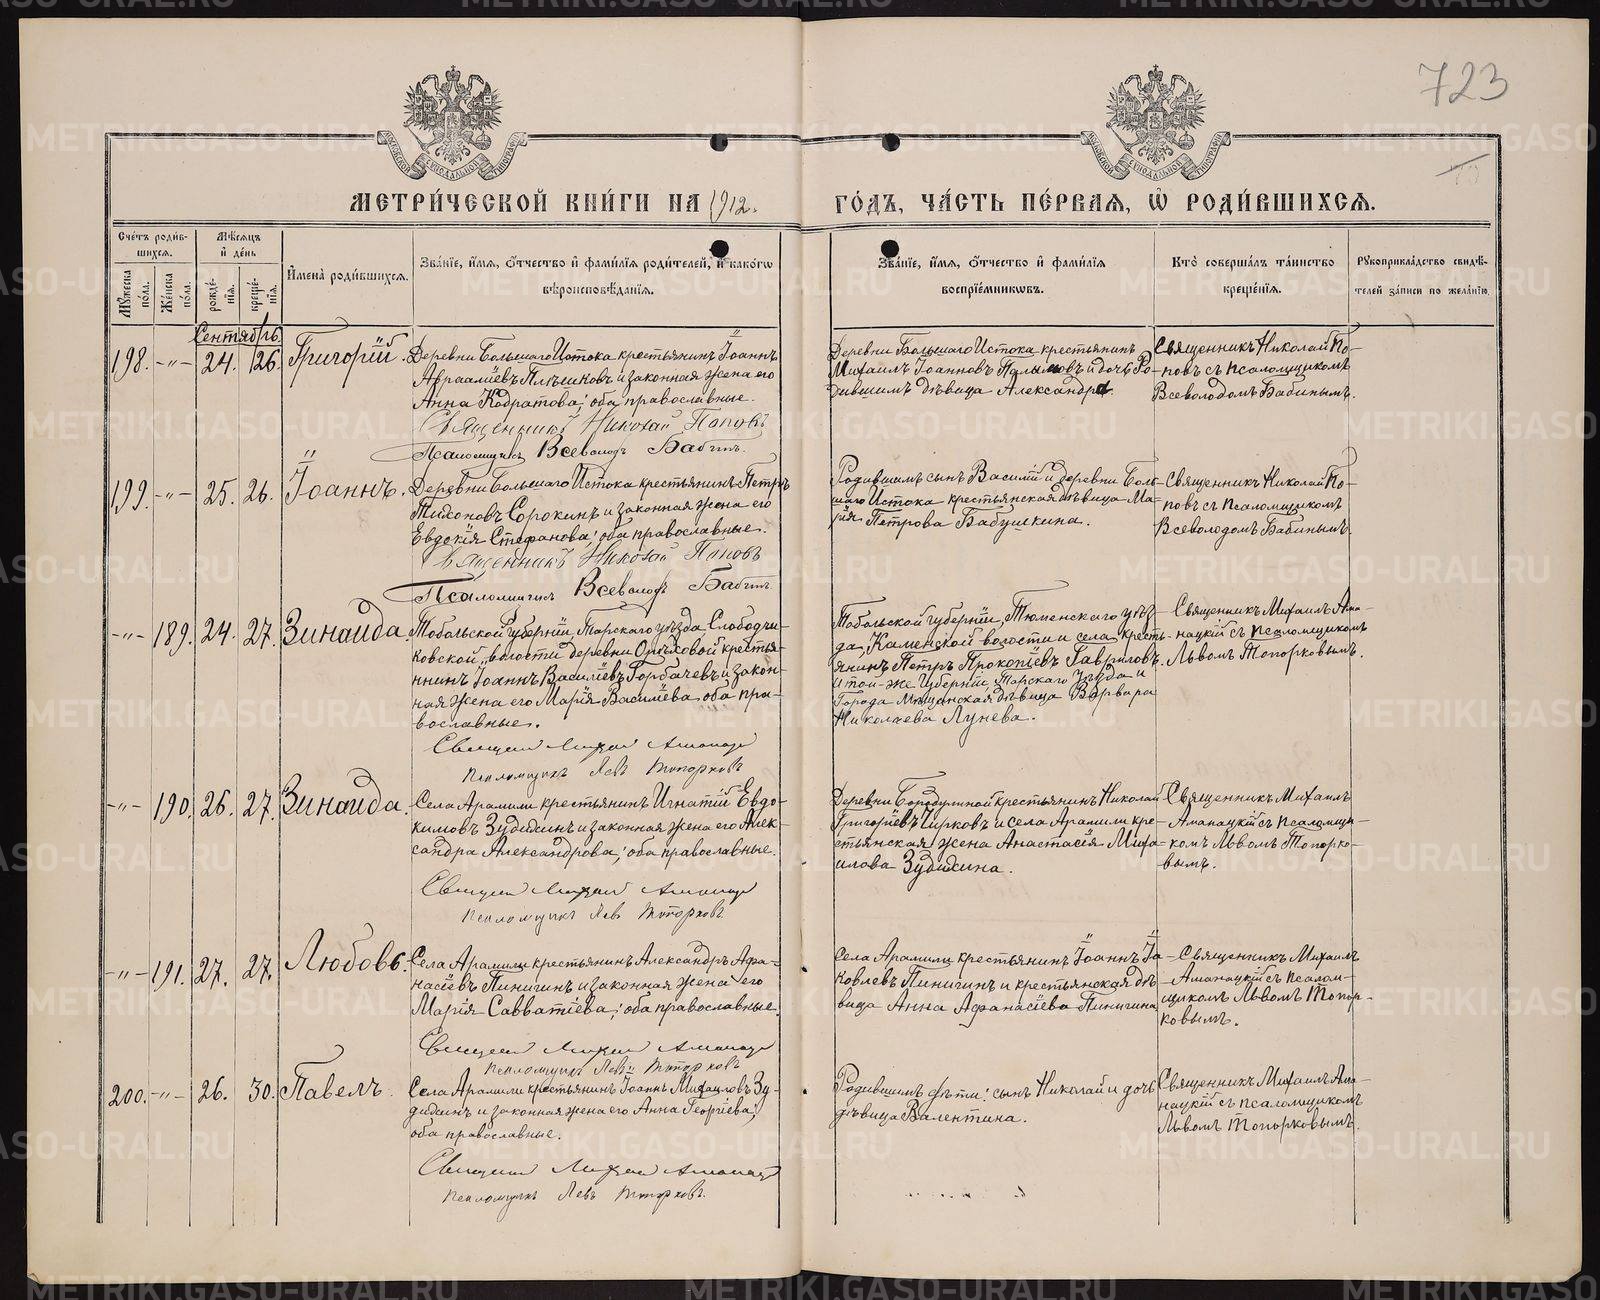 723
МЕТРИ́ЧЕСКОЙ КНИ́ГИ НА 1912. ГО́ДЪ, ЧА́СТЬ ПЕ́РВАЯ, Ѽ РОДИ́ВШИХСЯ.
Сче́тъ роди́вшихся.
Мѣ́сяцъ и҆ де́нь
Мꙋ́жеска по́ла.
Же́нска по́ла.
рожде́нїѧ.
креще́нїѧ.
И҆мена̀ роди́вшихсѧ.
Зва́нїе, и҆́мѧ, ѻ҆́тчество и҆ фами́лїѧ роди́телей, и҆ како́гѡ
вѣроисповѣ́данїѧ.
Зва́нїе, и҆́мѧ, ѻ҆́тчество и҆ фами́лїѧ
воспрїе́мникѡвъ.
Кто̀ соверша́лъ та́инство
креще́нїѧ.
Рꙋкоприкла́дство свидѣ́-
телей за́писи по жела́нїю.
Сентябрь
198. -"- 24. 26. Григорій.
Деревни Большаго Истока крестьянинъ Іоаннъ
Авраамiевъ Плѣшковъ и законная жена его
Анна Кодратова; оба православные.
Священникъ Николай Поповъ
Псаломщикъ Всеволодъ Бабинъ.
Деревни Большаго Истока крестьянинъ
Михаилъ Іоанновъ и дочь Ро-
дившимъ дѣвица Александра.
Священникъ Николай По-
повъ съ псаломщикомъ
Всеволодомъ Бабинымъ.
199. -"- 25. 26. Іоаннъ.
Деревни Большаго Истока крестьянинъ Петръ
Тихоновъ Сорокинъ и законная жена его
Евдокія Стефанова; оба православные.
Священникъ Николай Поповъ
Псаломщикъ Всеволодъ Бабинъ
Родившимъ сынъ Василій и деревни Боль-
шаго Истока крестьянская дѣвица Ма-
рія Петрова Бабушкина.
Священникъ Николай По-
повъ съ псаломщикомъ
Всеволодомъ Бабинымъ.
-"- 189. 24. 27. Зинаида.
Тобольской губерніи, Тарскаго уѣзда, Слободчи-
ковской волости деревни Орѣховой крестья-
нинъ Іоаннъ Василіевъ Горбачевъ и закон-
ная жена его Марія Василіева, оба пра-
вославные.
Священ Михаил Аманацк
псаломщикъ Левъ Топорковъ
Тобольской губерніи, Тюменскаго уѣз-
да, Каменской волости и села кресть-
янинъ Петръ Прокопіевъ Гавриловъ
и той-же губерніи, Тарскаго уѣзда и
Города мѣщанская дѣвица Варвара
Николаева Лунева.
Священникъ Михаилъ Ама-
нацкій съ псаломщикомъ
Львомъ Топорковымъ.
-"- 190. 26. 27. Зинаида.
Села Арамили крестьянинъ Игнатій Евдо-
кимовъ Зудихинъ и законная жена его Алек-
сандра Александрова; оба православные.
Священ Михаил Аманацк
псаломщикъ Левъ Топорковъ
Деревни Бородулиной крестьянинъ Николай
Григоріевъ Чирковъ и села Арамили кре-
стьянская жена Анастасія Миха-
илова Зудихина.
Священникъ Михаилъ
Аманацкій съ псаломщи-
комъ Львомъ Топорко-
вымъ.
-"- 191. 27. 27. Любовь.
Села Арамили крестьянинъ Александръ Афа-
насіевъ Пинигинъ и законная жена его
Марія Савватіева; оба православные.
Священ Михаил Аманацк
псаломщикъ Левъ Топорковъ
Села Арамили крестьянинъ Іоаннъ Іа-
ковлевъ Пинигинъ и крестьянская дѣ-
вица Анна Афанасіева Пинигина.
Священникъ Михаилъ
Аманацкій съ псалом-
щикомъ Львомъ Топор-
ковымъ.
200. -"- 26. 30. Павелъ.
Села Арамили крестьянинъ Іоаннъ Михаиловъ Зу-
дихинъ и законная жена его Анна Георгіева;
оба православные.
Священ Михаил Аманацк
псаломщикъ Левъ Топорковъ.
Родившимъ дѣти: сынъ Николай и дочь
дѣвица Валентина.
Священникъ Михаилъ Ама-
нацкій съ псаломщикомъ
Львомъ Топорковымъ.
METRIKI.GASO-URAL.RU